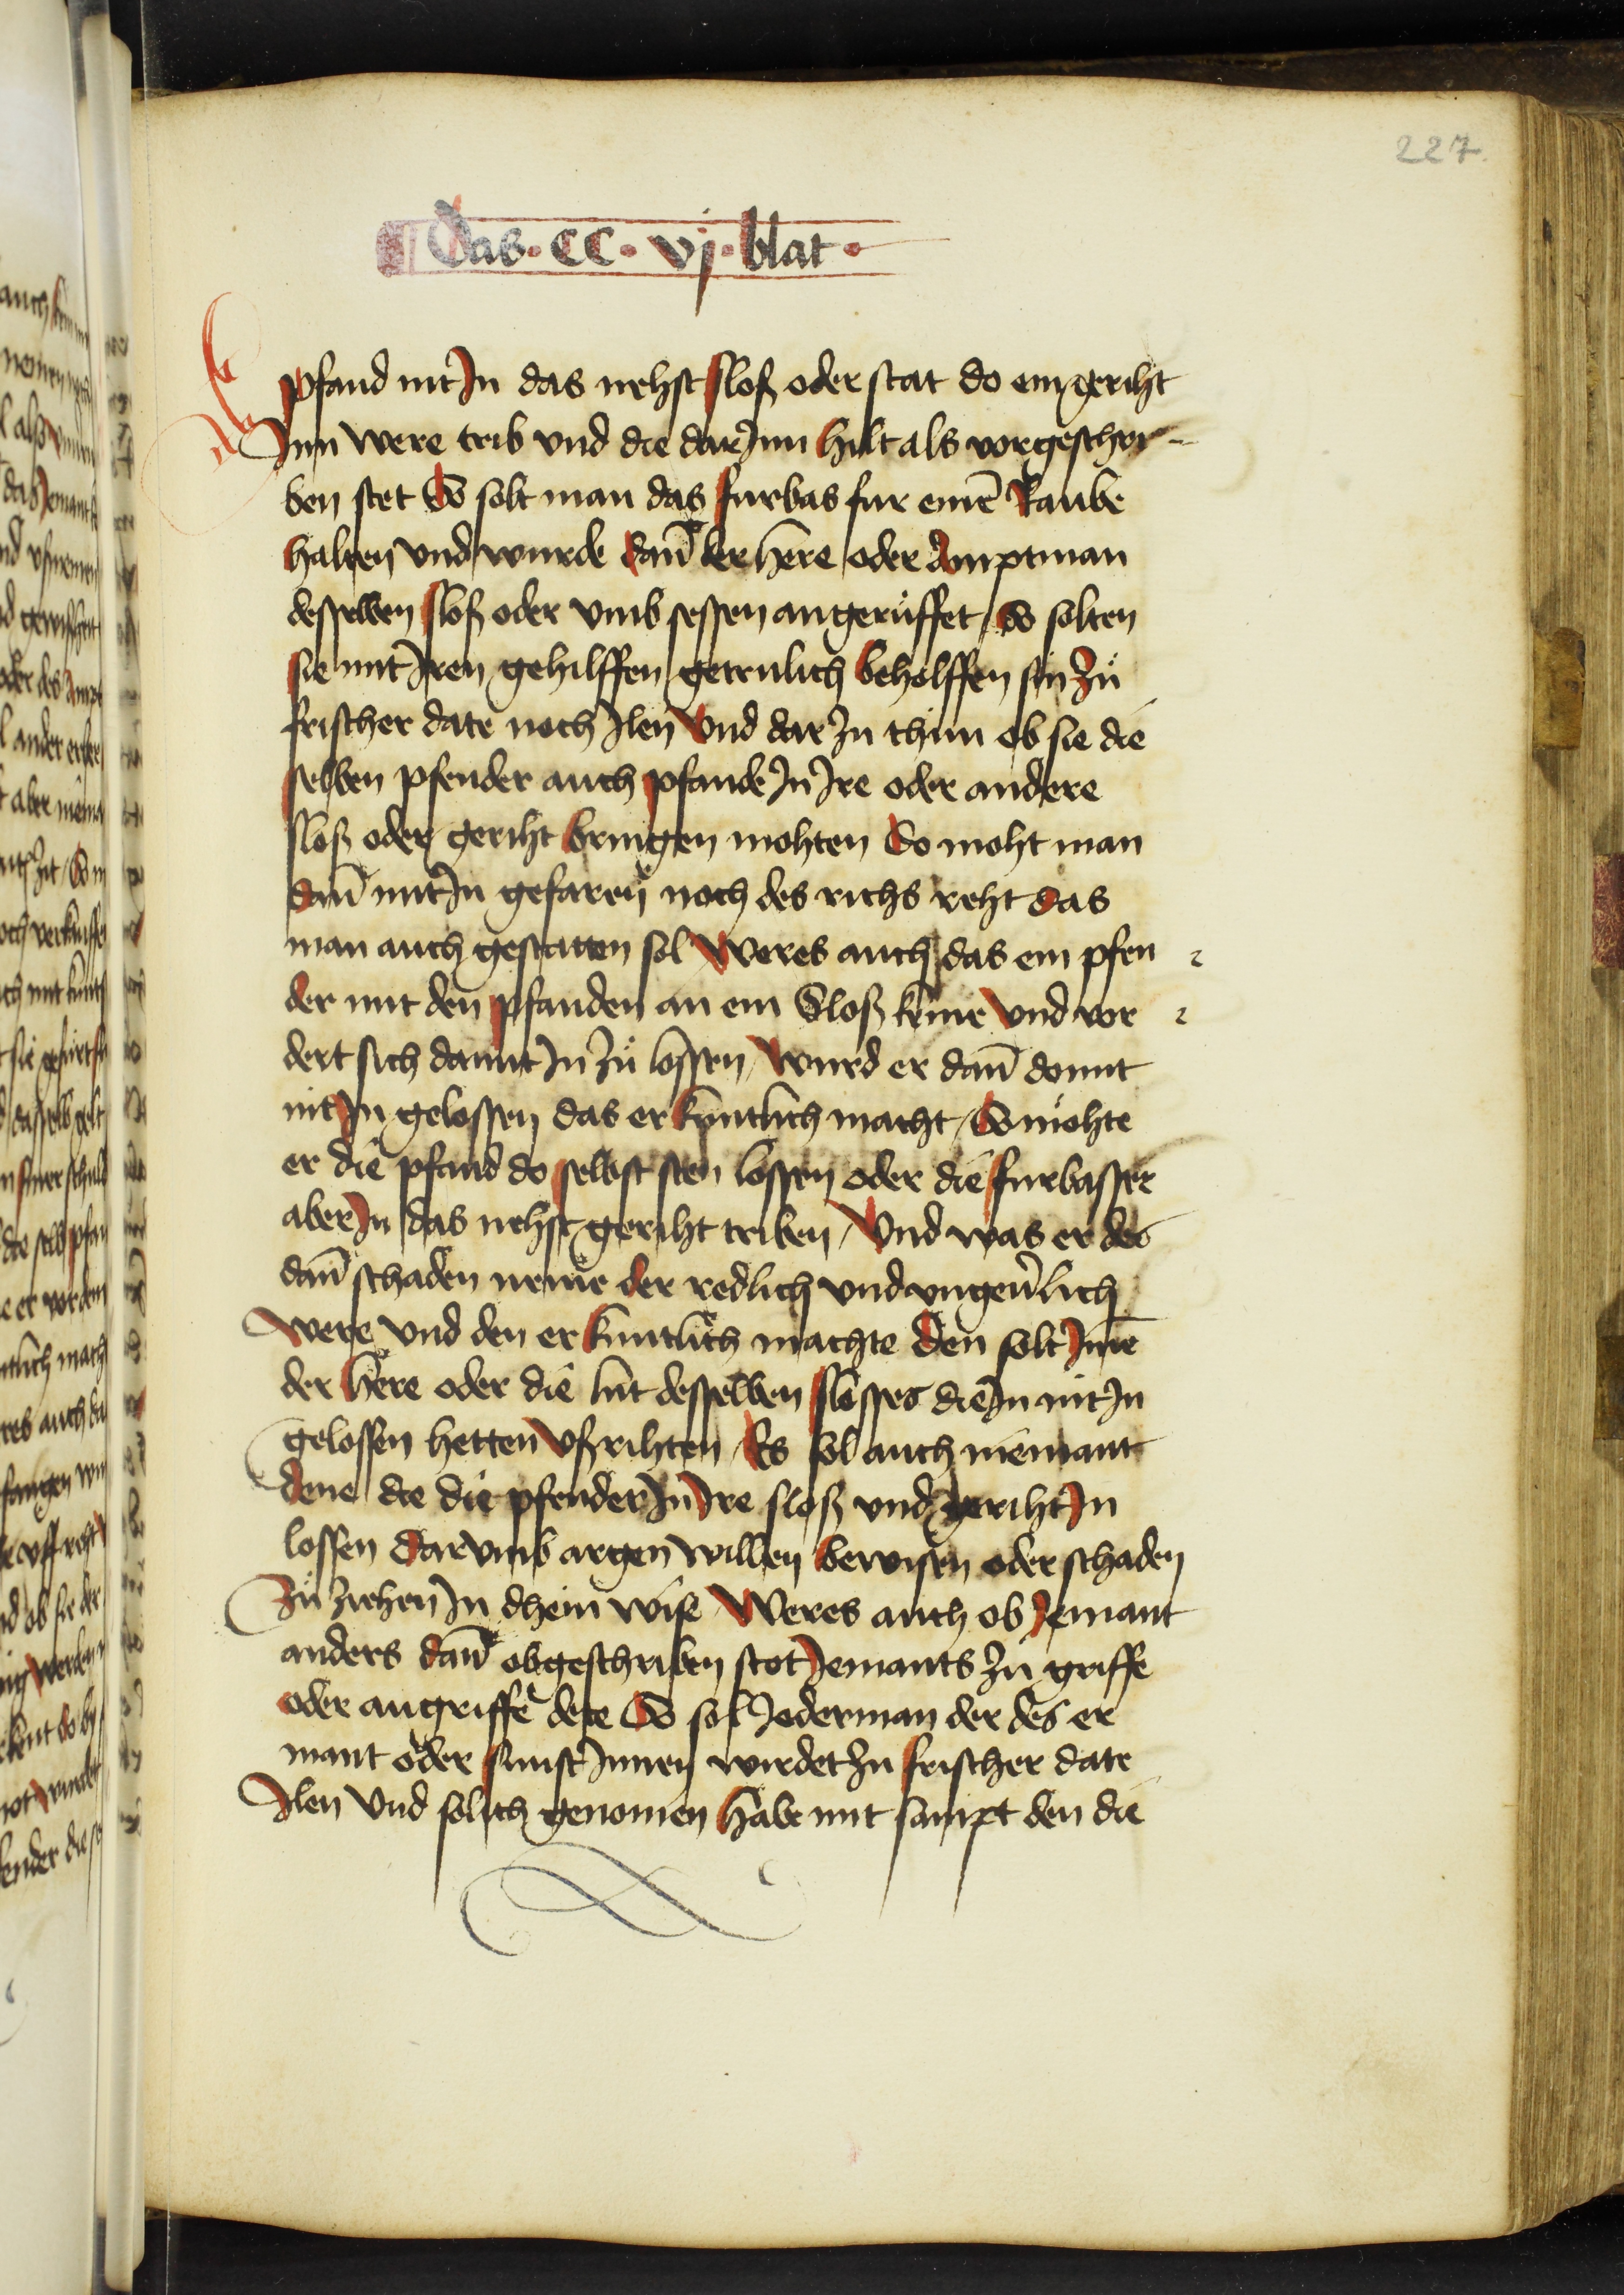 227
Das · CC · vj · blat ·
pfand nit In das nehst sloß oder stat do ein geriht
Inn were trib vnd die dar Inn hilt als vorgeschri-
ben stet So solt man das furbas fur einē Raube
halten vnd wurde dan̄ der here oder Amptman
desselben sloß oder vmb sessen angerůffet / So solten
sie mit Iren gehilffen getrulich beholffen sin zů
frischer date noch Ilen Vnd dar zu thun ob sie die
selben pfender auch pfande In Ire oder andere
sloß oder geriht bringen mohten So moht man
dan̄ mit In gefaren noch des richs reht das
man auch gestatten sol Weres auch das ein pfen
der mit den pfanden an ein Sloß keme Vnd vor
dert sich damit In zů lossen / Wurd er dan̄ domit
nit In gelossen das er kuntlich macht / So mohte
er die pfand do selbst sten lossen oder die furbasser
aber In das nehst geriht triben / Vnd was er des
dan̄ schaden neme der redlich vnd vngeu̓lich
were vnd den er kuntlich machte Den solt Ime
der here oder die lut desselben slosses die In nit In
gelossen hetten Vßrihten / Es sol auch niemant
dene die die pfender In Ire sloß vnd geriht In
lossen Darvmb argen willen bewisen oder schaden
zů ziehen In dhein wise / Weres auch ob Iemant
anders dan̄ obgeschriben stot Iemants zů griffe
oder angriffe dete So sol Iederman der des er
mant oder sunst Innen wirdet zu frischer date
Ilen Vnd solich genomen habe mit sampt den die